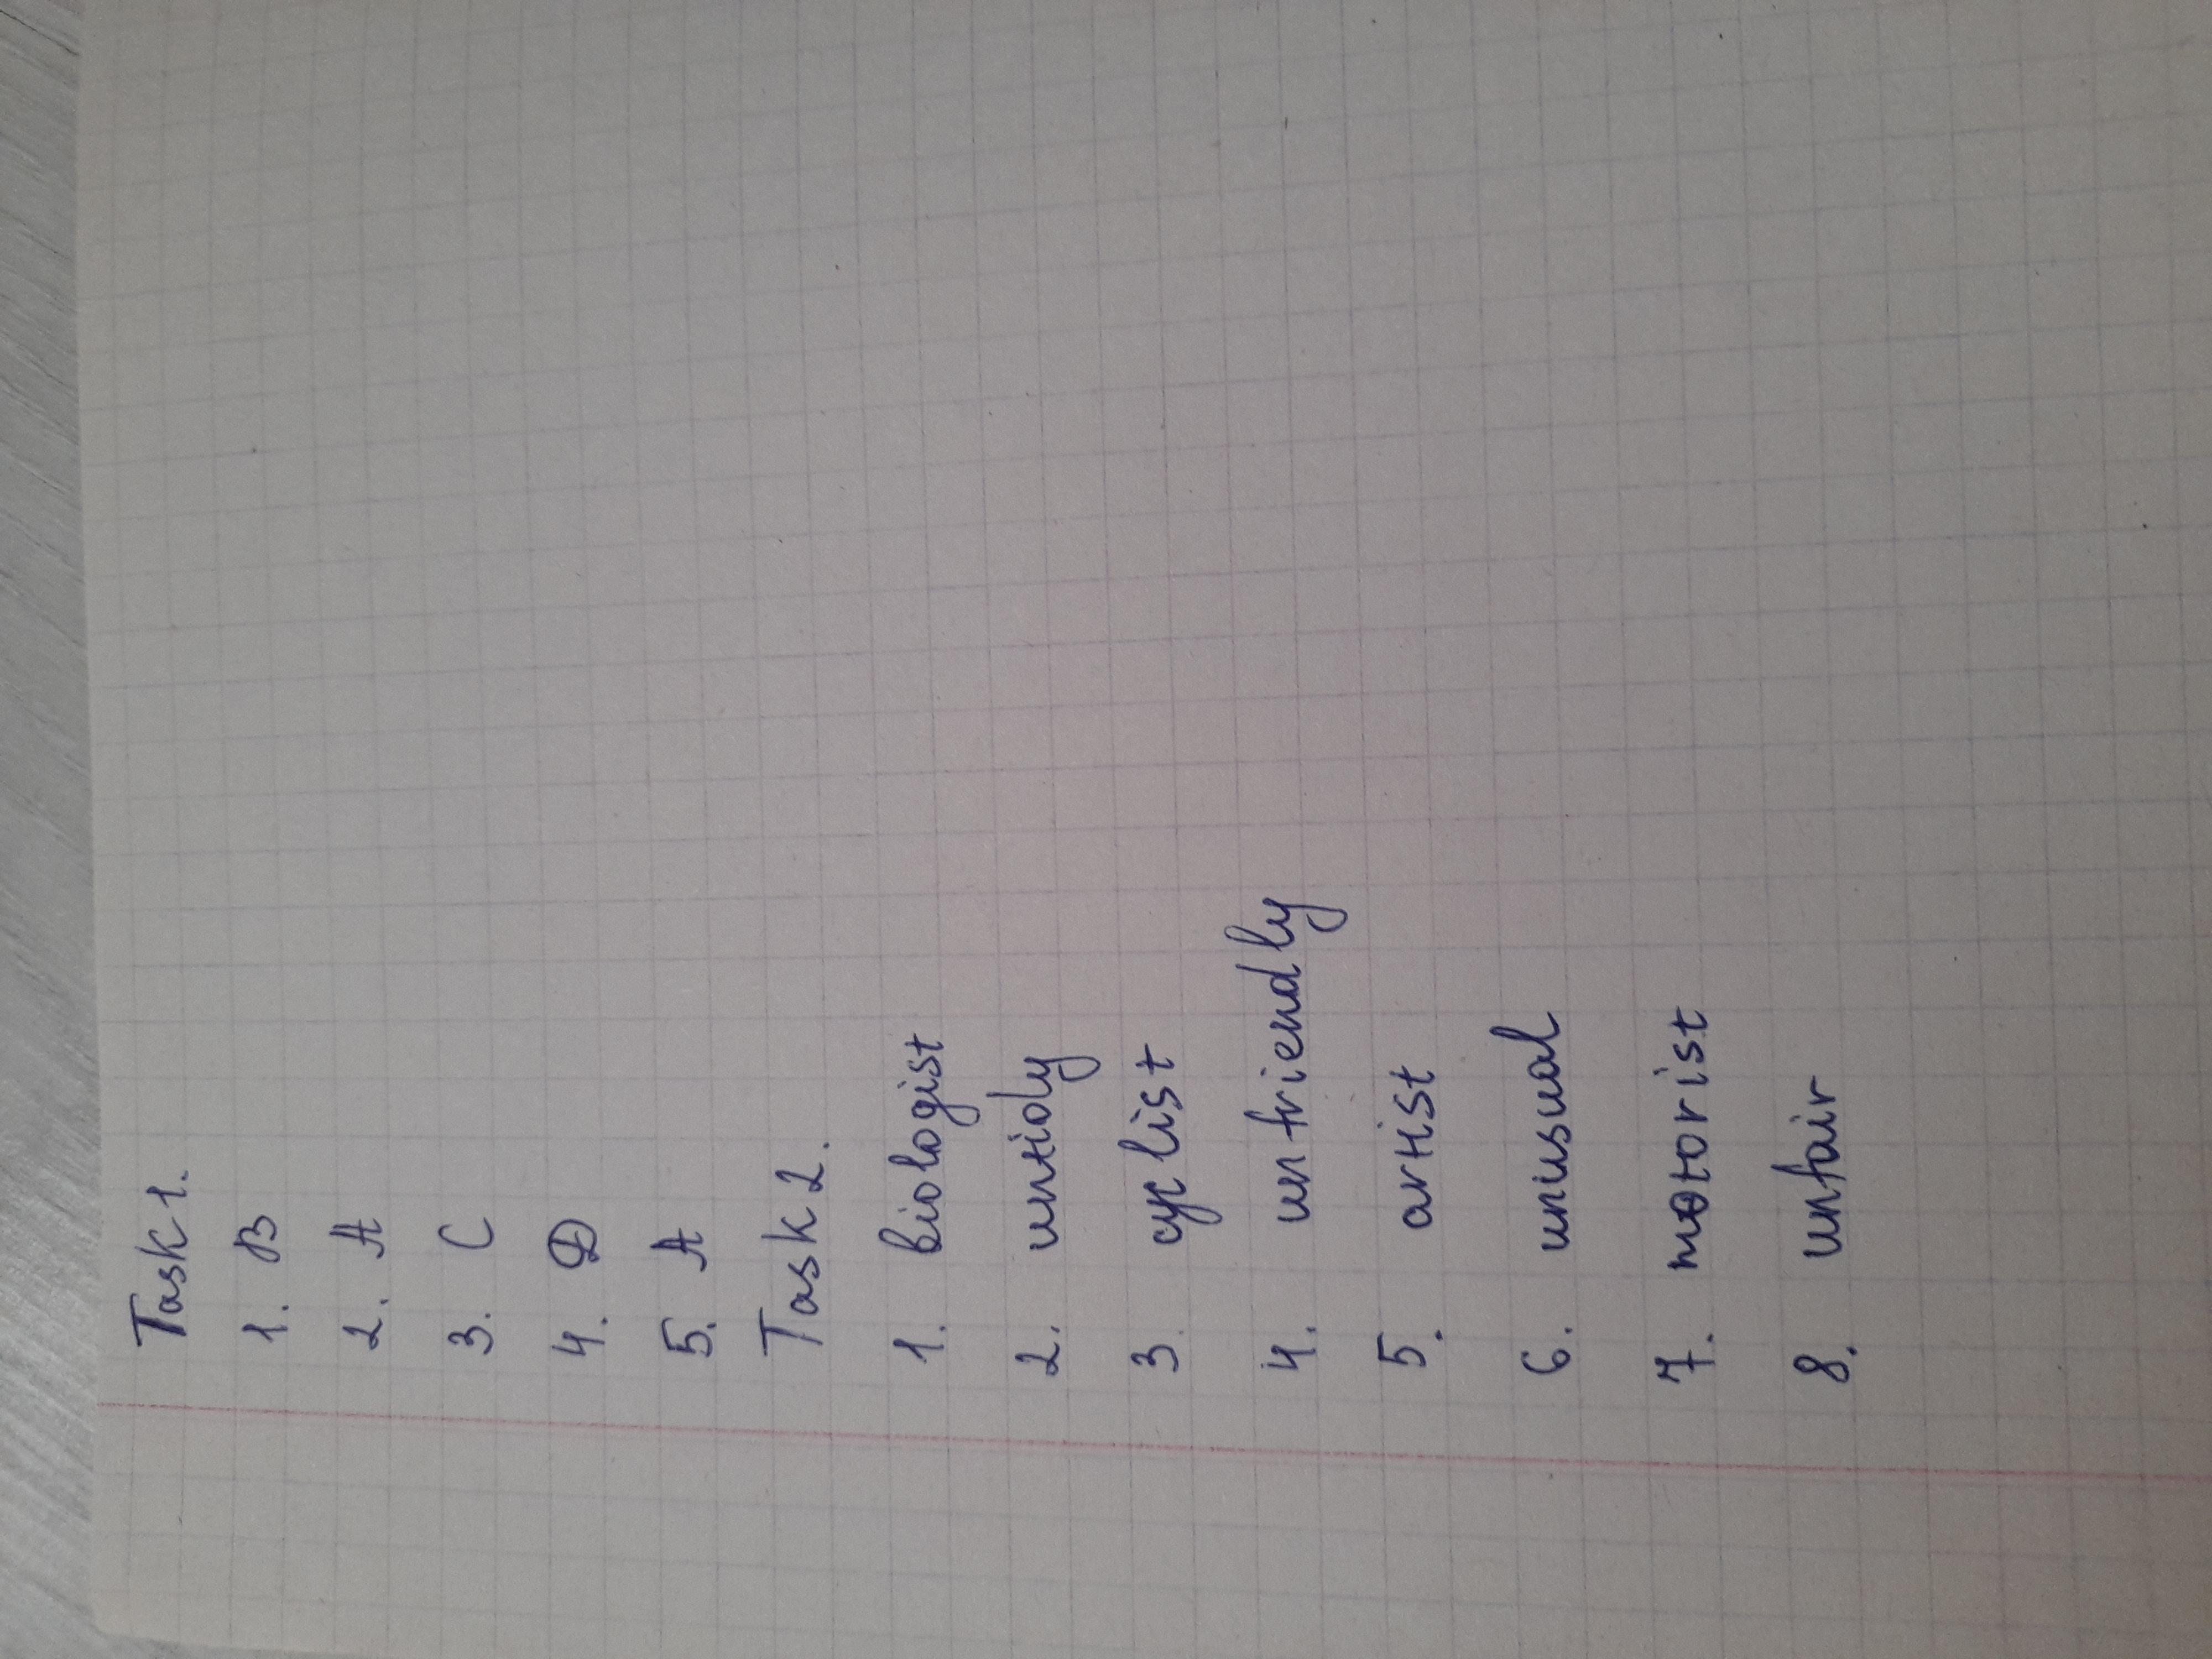 Task 1.
1. B
2. A
3. C
4. D
5. A
Task 2.
1. biologist
2. untidy
3 cyclist
4. unfriendly
5. artist
6. unusual
7. motorist
8. unfair